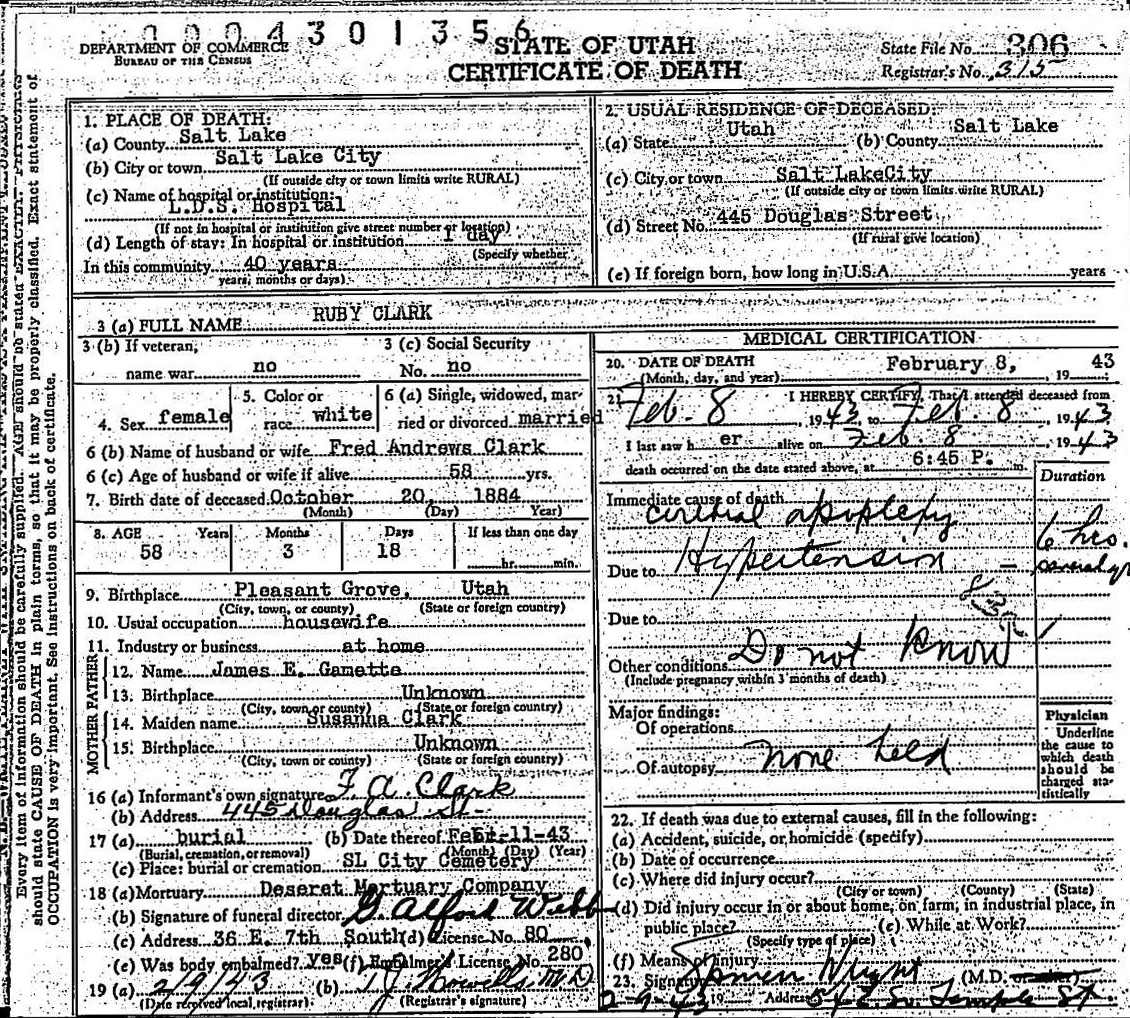 0004301356
DEPARTMENT OF COMMERCE
BUREAU OF THE CENSUS
STATE OF UTAH
CERTIFICATE OF DEATH
State File No. 306
Registrar's No. 315
Every item of information should be carefully supplied. AGE should be stated EXACTLY. PHYSICIANS
should state CAUSE OF DEATH in plain terms, so that it may be properly classified. Exact statement of
OCCUPATION is very important. See instructions on back of certificate.
1. PLACE OF DEATH:
(a) County Salt Lake
(b) City or town Salt Lake City
(If outside city or town limits write RURAL)
(c) Name of hospital or institution:
L.D.S. Hospital
(If not in hospital or institution give street number or location)
(d) Length of stay: In hospital or institution 1 day
(Specify whether
In this community 40 years
years, months or days)
2. USUAL RESIDENCE OF DECEASED:
(a) State Utah (b) County Salt Lake
(c) City or town Salt LakeCity
(If outside city or town limits write RURAL)
(d) Street No. 445 Douglas Street
(If rural give location)
(e) If foreign born, how long in U.S.A. years
3 (a) FULL NAME RUBY CLARK
3 (b) If veteran, name war no
3 (c) Social Security No. no
4. Sex female
5. Color or race white
6 (a) Single, widowed, married or divorced married
6 (b) Name of husband or wife Fred Andrews Clark
6 (c) Age of husband or wife if alive 58 yrs.
7. Birth date of deceased October 20, 1884
(Month) (Day) Year)
8. AGE Years Months Days If less than one day
58 3 18 hr. min.
9. Birthplace Pleasant Grove, Utah
(City, town, or county) (State or foreign country)
10. Usual occupation housewife
11. Industry or business at home
FATHER
12. Name James E. Gamette
13. Birthplace Unknown
(City, town or county) (State or foreign country)
MOTHER
14. Maiden name Susanna Clark
15. Birthplace Unknown
(City, town, or county) (State or foreign country)
16 (a) Informant's own signature F. A. Clark
(b) Address 445 Douglas St-
17 (a) burial (b) Date thereof Feb. 11-43
(Burial, cremation, or removal) (Month) (Day) (Year)
(c) Place: burial or cremation SL City Cemetery
18 (a) Mortuary Deseret Mortuary Company
(b) Signature of funeral director G. Alford Webb
(c) Address 36 E. 7th South (d) License No. 80
(e) Was body embalmed? yes (f) Embalmer's License No. 280
19 (a) 2/9/43 (b) M.D.
(Date received local registrar) (Registrar's signature)
MEDICAL CERTIFICATION
20. DATE OF DEATH February 8, 1943
(Month, day, and year)
21. I HEREBY CERTIFY, That I attended deceased from
Feb. 8, 1943 to Feb. 8, 1943
I last saw her alive on Feb. 8, 1943
death occurred on the date stated above, at 6:45 P. m.
Duration
Immediate cause of death
cerebral apoplexy 6 hrs.
Due to Hypertension - several yr
Due to
Other conditions Do not know
(Include pregnancy within 3 months of death)
Major findings:
Of operations
Of autopsy none held
Physician
Underline
the cause to
which death
should be
charged statistically
22. If death was due to external causes, fill in the following:
(a) Accident, suicide, or homicide (specify)
(b) Date of occurrence
(c) Where did injury occur?
(City or town) (County) (State)
(d) Did injury occur in or about home, on farm, in industrial place, in
public place? (e) While at Work?
(Specify type of place)
(f) Means of injury
23. Signature Wright (M.D.
2-9-43 19 Address 54 E. So. Temple St.